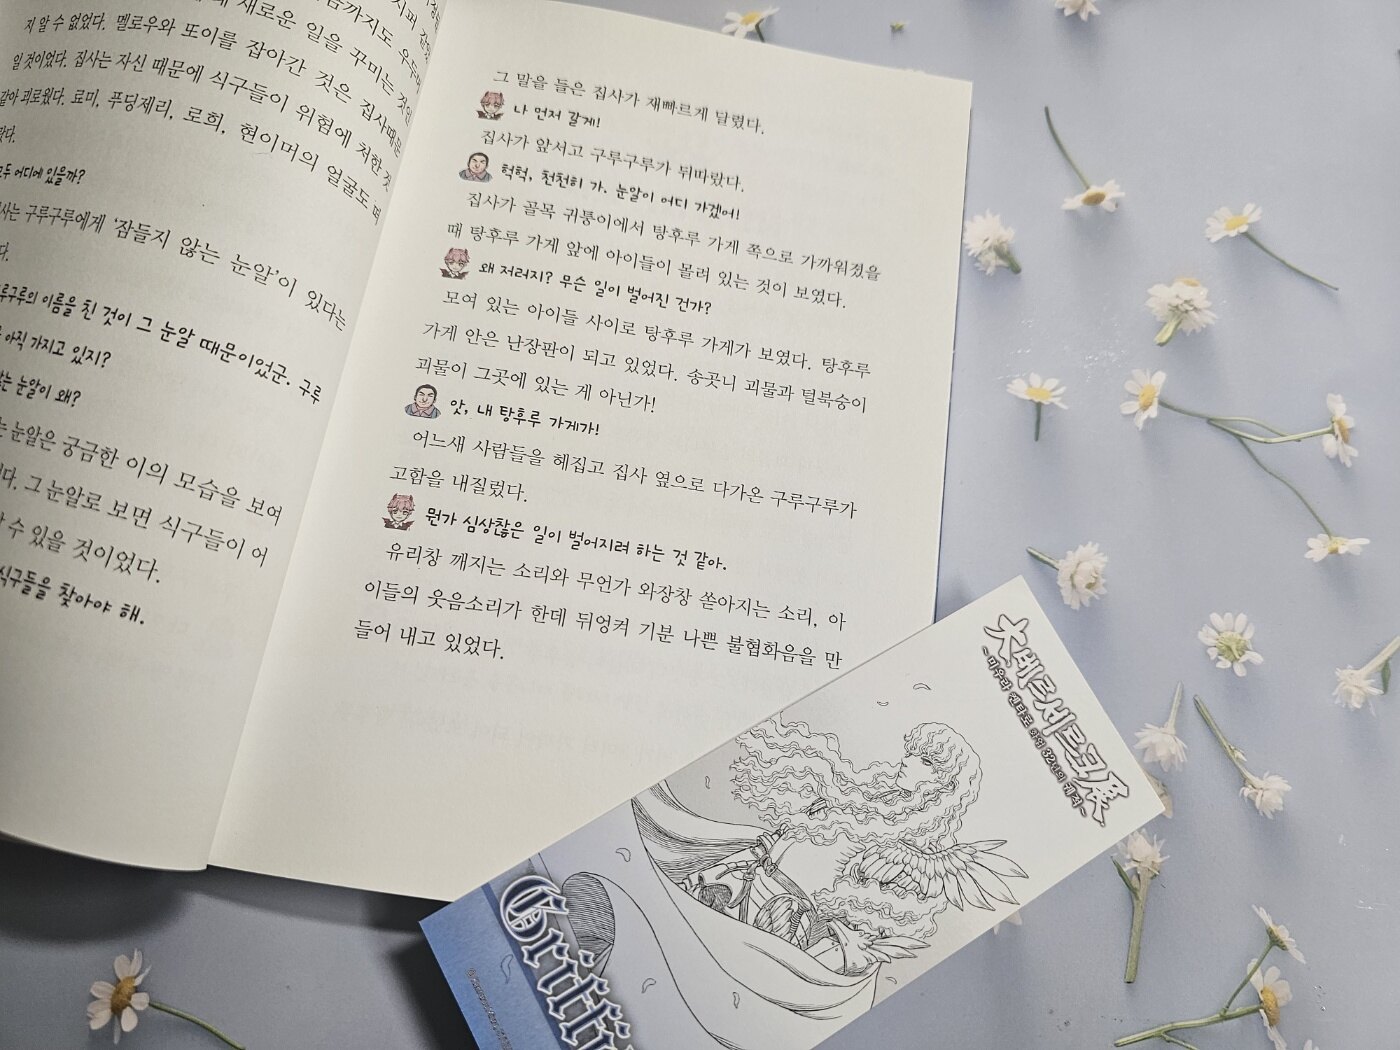 새로운 일을 꾸미는 것인
지 알 수 없었다. 멜로우와 또이를 잡아간 것은 집사때문
일 것이었다. 집사는 자신 때문에 식구들이 위험에 처한 것
같아 괴로웠다. 료미, 푸딩제리, 로희, 현이머의 얼굴도 떠
랐다.
모두 어디에 있을까?
구루구루에게 ‘잠들지 않는 눈알’이 있다는
다.
구루구루의 이름을 친 것이 그 눈알 때문이었군. 구루
아직 가지고 있지?
않는 눈알이 왜?
눈알은 궁금한 이의 모습을 보여
그 눈알로 보면 식구들이 어
수 있을 것이었다.
식구들을 찾아야 해.
그 말을 들은 집사가 재빠르게 달렸다.
나 먼저 갈게!
집사가 앞서고 구루구루가 뒤따랐다.
헉헉, 천천히 가. 눈알이 어디 가겠어!
집사가 골목 귀퉁이에서 탕후루 가게 쪽으로 가까워졌을
때 탕후루 가게 앞에 아이들이 몰려 있는 것이 보였다.
왜 저러지? 무슨 일이 벌어진 건가?
모여 있는 아이들 사이로 탕후루 가게가 보였다. 탕후루
가게 안은 난장판이 되고 있었다. 송곳니 괴물과 털북숭이
괴물이 그곳에 있는 게 아닌가!
앗, 내 탕후루 가게가!
어느새 사람들을 헤집고 집사 옆으로 다가온 구루구루가
고함을 내질렀다.
뭔가 심상찮은 일이 벌어지려 하는 것 같아.
유리창 깨지는 소리와 무언가 와장창 쏟아지는 소리, 아
이들의 웃음소리가 한데 뒤엉켜 기분 나쁜 불협화음을 만
들어 내고 있었다.
大베르세르크展
-미우라 켄타로 화업 32년의 궤적-